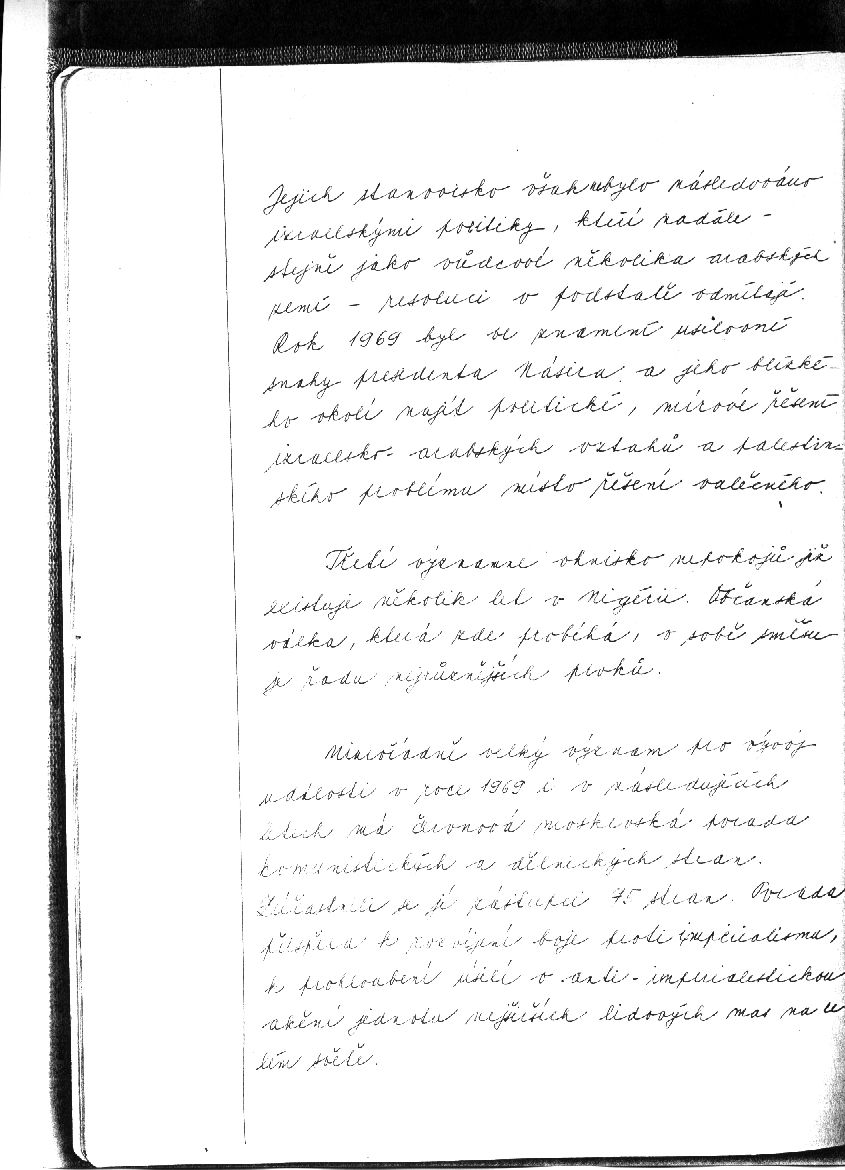 Jejich stanovisko však nebylo následováno
izraelskými politiky, kteří nadále -
stejně jako vůdcové několika arabských
zemí - resoluci v podstatě odmítají.
Rok 1969 byl ve znamení usilovné
snahy presidenta Násira a jeho blízké-
ho okolí najít politické, mírové řešení
izraelsko-arabských vztahů a palestin=
ského problému místo řešení válečného.
Třetí významné ohnisko nepokojů již
existuje několik let v Nigérii. Občanská
válka, která zde probíhá, v sobě směšu-
je řadu nejrůznějších prvků.
Mimořádně velký význam pro vývoj
událostí v roce 1969 i v následujících
letech má červnová moskevská porada
komunistických a dělnických stran.
Zúčastnili se jí zástupci 75 stran. Porada
přispěla k rozvíjení boje proti imperialismu,
k prohloubení úsilí o anti-imperialistickou
akční jednotu nejširších lidových mas na ce
lém světě.